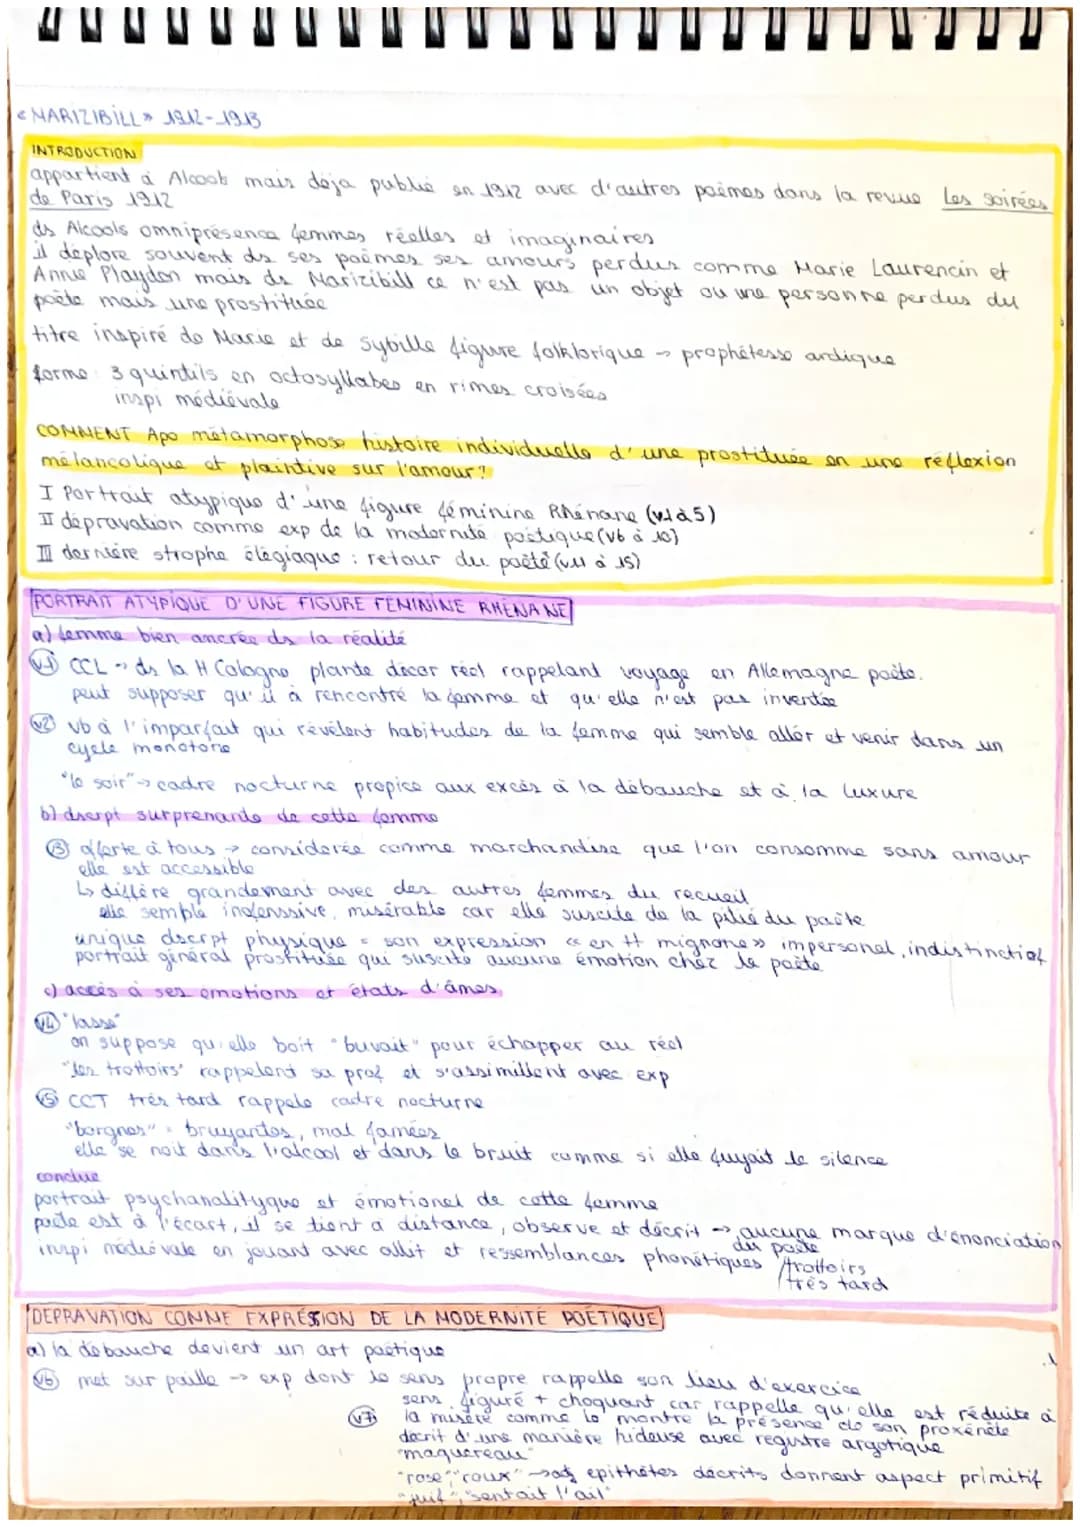 « MARIZIBILL » 1912-1913
INTRODUCTION
appartient à Alcools mais déja publié en 1912 avec d'autres poèmes dans la revue Les soirées
de Paris 1912
ds Alcools omniprésence femmes réelles et imaginaires
il déplore souvent ds ses poèmes ses amours perdus comme Marie Laurencin et
Annie Playdon mais ds Marizibill ce n'est pas un objet ou une personne perdus du
poète mais une prostituée
titre inspiré de Marie et de Sybille figure folklorique → prophétesse
forme : 3 quintils en octosyllabes en rimes croisées
inspi médiévale
COMMENT Apo métamorphose histoire individuelle d'une prostituée en une réflexion
mélancolique et plaintive sur l'amour?
I Portrait atypique d'une figure féminine Rhénane (v.1 à 5)
II dépravation comme exp de la modernité poétique (v6 à 10)
III dernière strophe élégiaque : retour du poète (v.11 à 15)
PORTRAIT ATYPIQUE D'UNE FIGURE FEMININE RHENANE
a) femme bien ancrée ds la réalité
v.1 CCL → ds la H Cologne plante décor réel rappelant voyage en Allemagne poète.
peut supposer qu'il à rencontré la femme et qu'elle n'est pas inventée
v2 vb à l'imparfait qui révèlent habitudes de la femme qui semble aller et venir dans un
cycle monotone
"le soir" → cadre nocturne propice aux excès à la débauche et à la luxure
b) dscrpt surprenante de cette femme
v3 offerte à tous → considérée comme marchandise que l'on consomme sans amour
elle est accessible
↳ diffère grandement avec des autres femmes du recueil
elle semble inofenssive, misérable car elle suscite de la pitié du poète
unique dscrpt physique = son expression « en tt mignone » impersonel, indistinctif
portrait général prostituée qui suscite aucune émotion chez le poète
c) accès à ses emotions et états d'âmes
v4 "lasse"
on suppose qu'elle boit "buvait" pour échapper au réel
"les trottoirs" rappelent sa prof et s'assimilent avec exp
v5 CCT très tard rappele cadre nocturne
"borgnes" = bruyantes, mal famées
elle se noit dans l'alcool et dans le bruit comme si elle fuyait le silence
conclue
portrait psychanalityque et émotionel de cette femme
poète est à l'écart, il se tient a distance, observe et décrit → aucune marque d'énonciation
du poète
inspi médiévale en jouant avec allit et ressemblances phonétiques / trottoirs
/ très tard
DEPRAVATION COMME EXPRESSION DE LA MODERNITÉ POÉTIQUE
a) la débauche devient un art poétique
v6 met sur paille → exp dont le sens propre rappelle son lieu d'exercice
sens figuré + choquant car rappelle qu'elle est réduite à
v7 la misère comme le montre la présence de son proxénète
décrit d'une manière hideuse avec registre argotique
"maquereau"
"rose", "roux" → adj epithètes décrits donnent aspect primitif
"juif", "sentait l'ail"